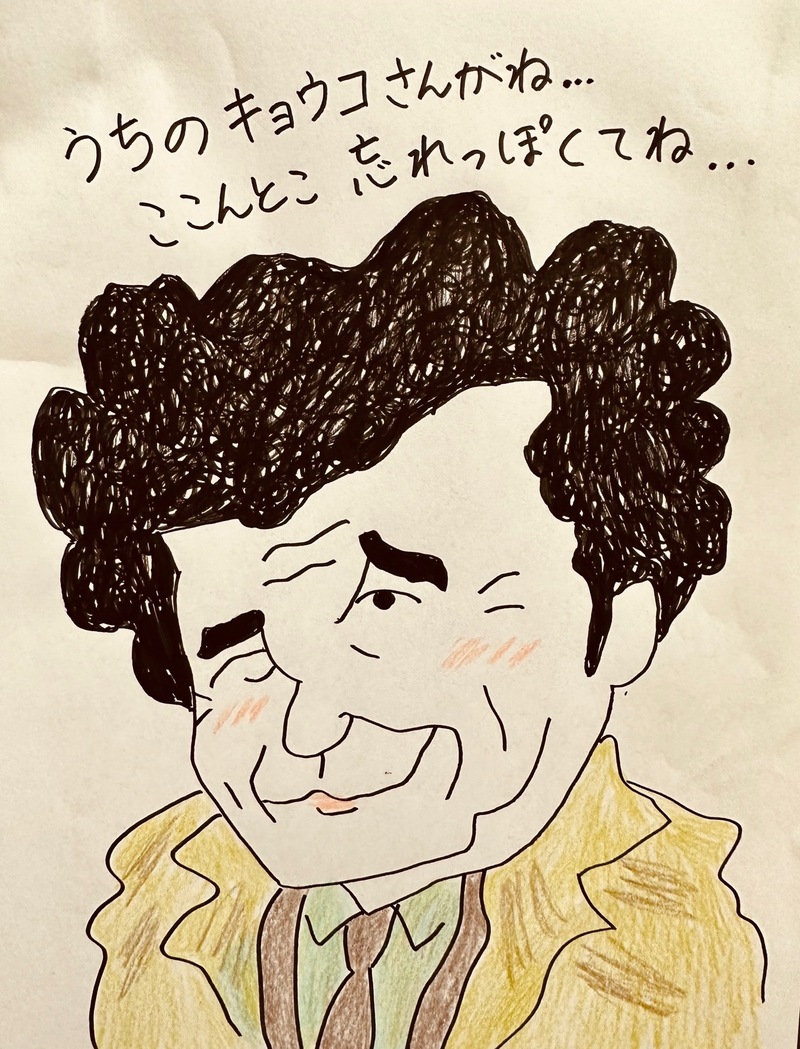 うちの キョウコさんがね...
ここんとこ 忘れっぽくてね...